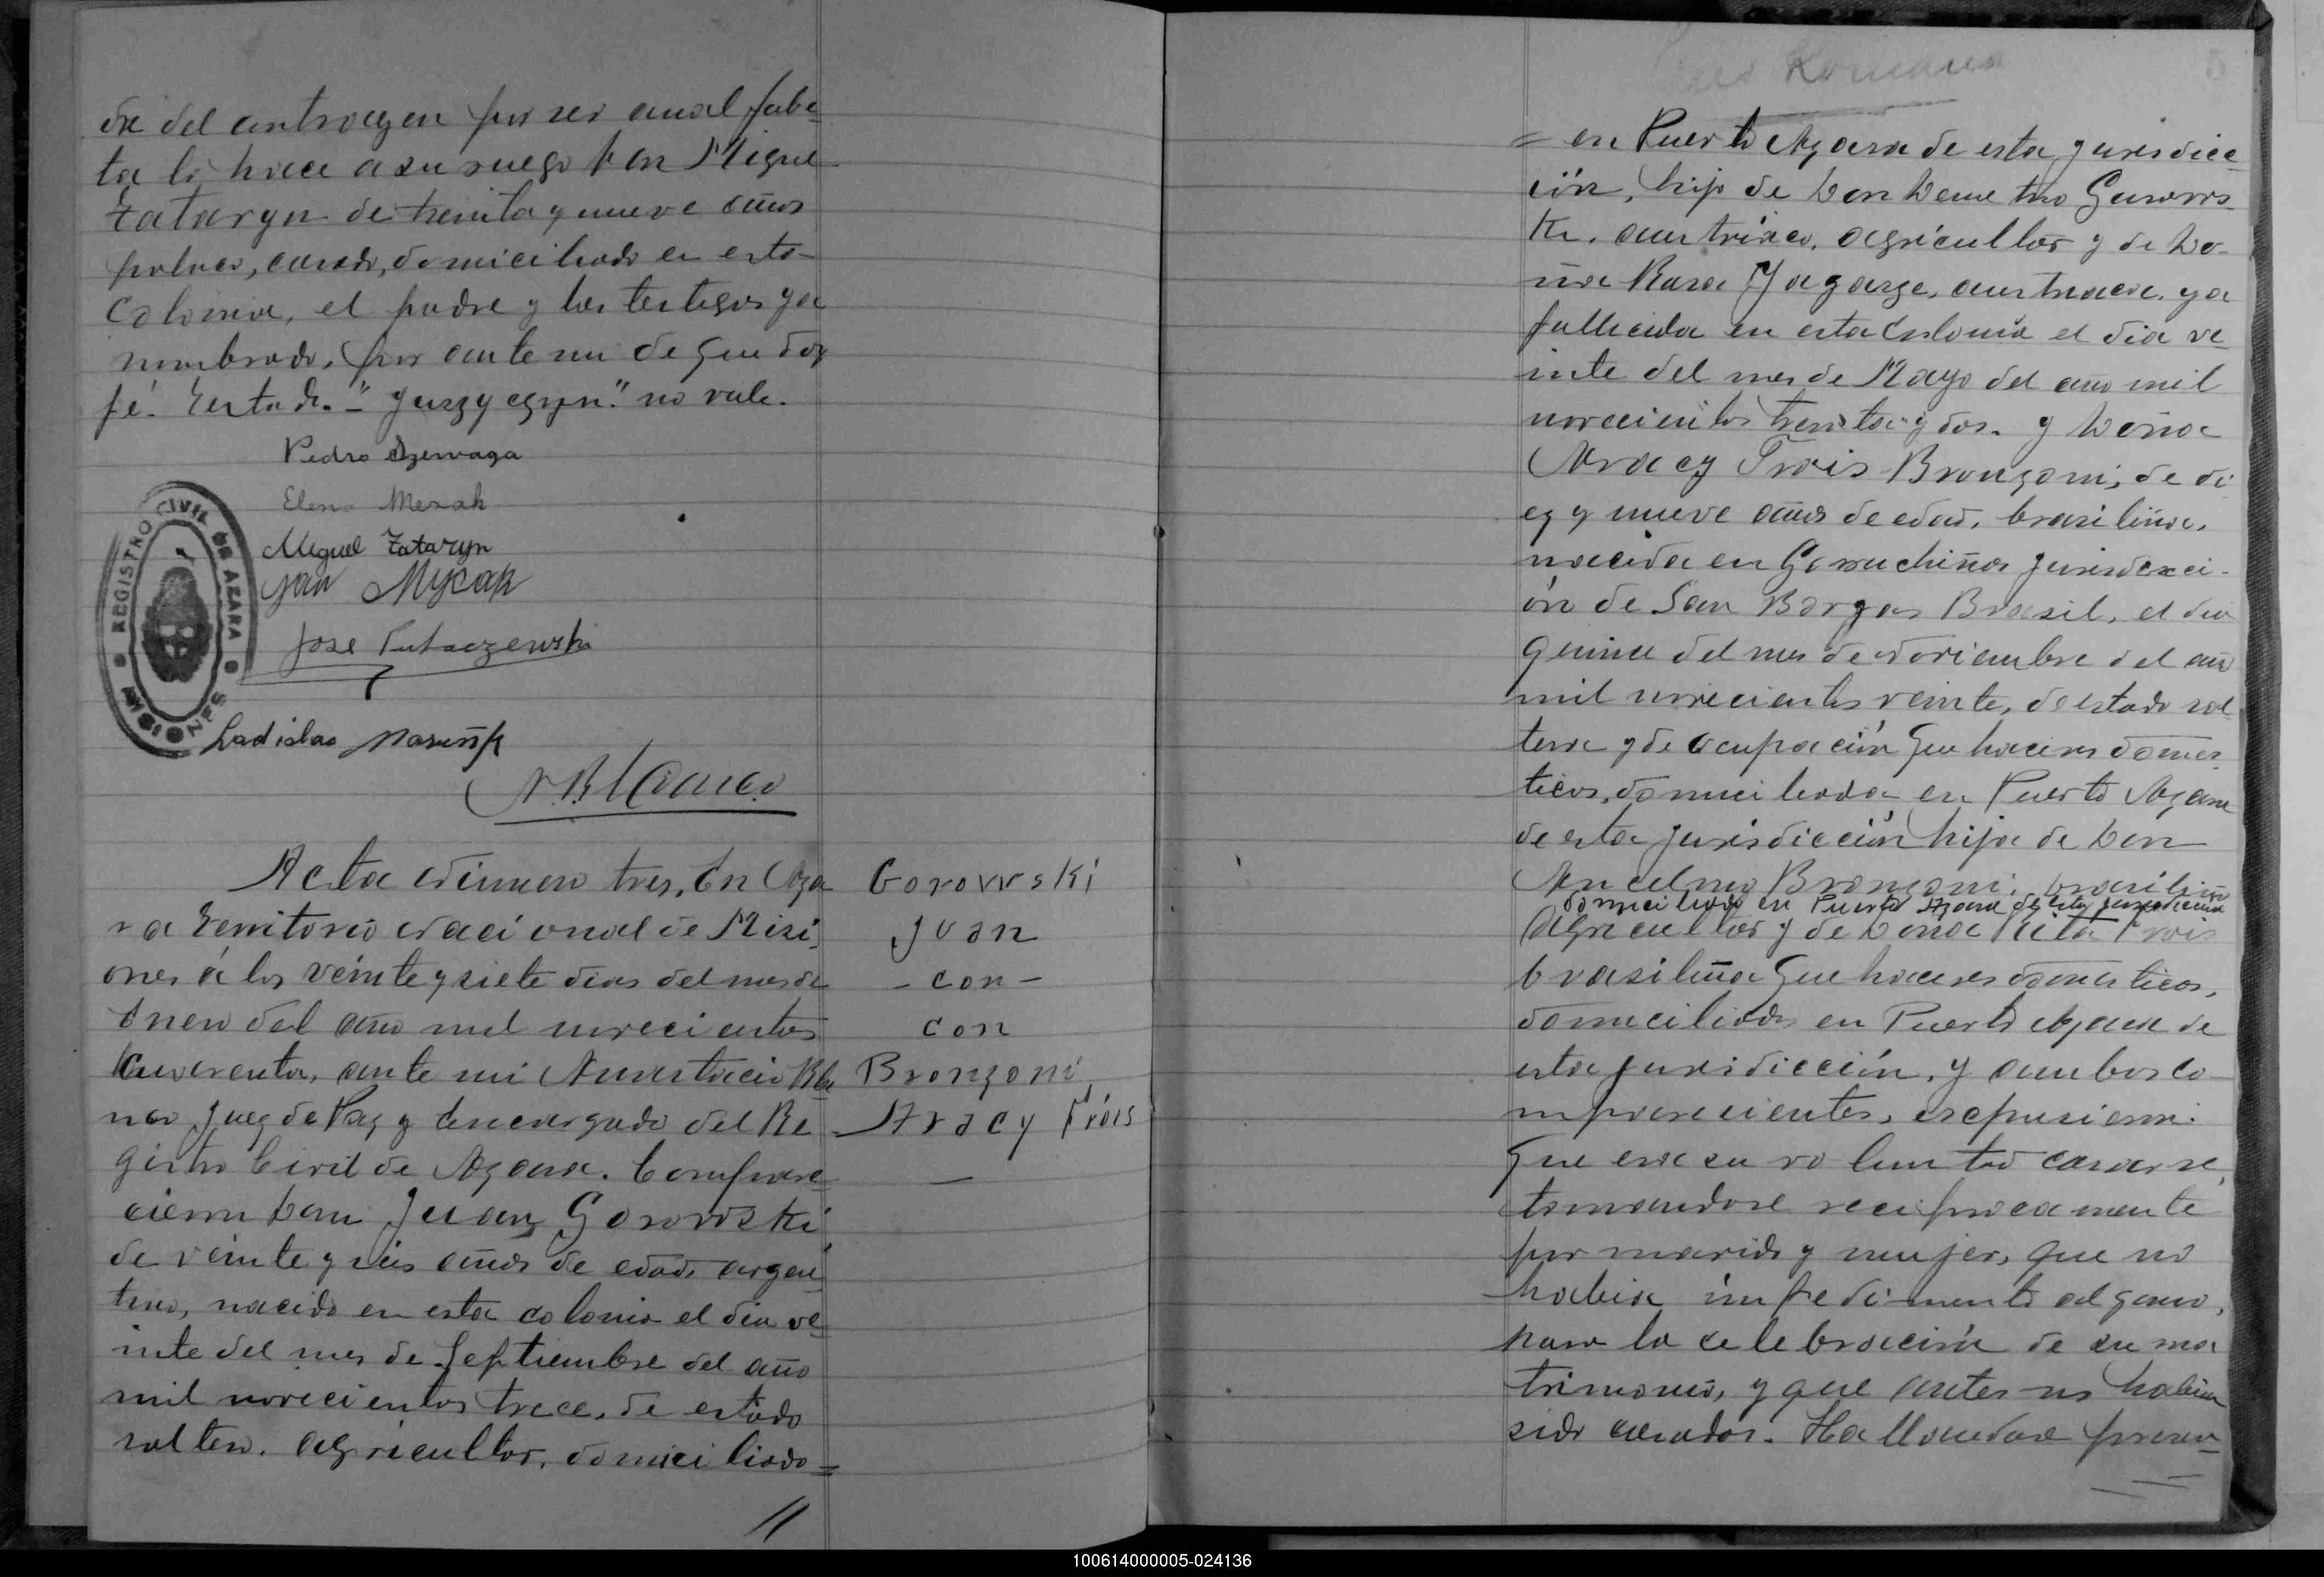 dre del contrayen por ser anal fabe-
ta lo hace a su ruego Don Miguel
Zataryn de treinta y nueve años
polaco, casado, domiciliado en esta
Colonia, el padre y los testigos ya
nombrado, por ante mi de que doy
fé. Testado. -" Juszyczyn." no vale.
Pedro Dzerwaga
Elena Merak
Miguel Zataryn
Jan
Jose Putaczewski
REGISTRO CIVIL DE AZARA
MISIONES
Ladislao
A. Blanco
Acta Número tres, En Aza
ra Territorio Nacional de Misi
ones á los veinte y siete dias del mes de
Enero del año mil novecientos
Cuarenta, ante mi Anastacio Bla
nco Juez de Paz y Encargado del Re
gistro Civil de Azara. Compare
cieron Don Juan Gorowski
de veinte y seis años de edad, argen
tino, nacido en esta colonia el dia ve
inte del mes de Septiembre del año
mil novecientos trece, de estado
soltero. agricultor, domiciliado =
Gorowski
Juan
- con -
con
Bronzoni
Aracy Trois
—
Romano
5
= en Puerto Azara de esta jurisdicc
ión, hijo de Don Demetrio Gorows
ki, austríaco, agricultor y de Do-
ña Rosa, austriaca, ya
fallecida en esta Colonia el dia ve
inte del mes de Mayo del año mil
novecientos treinta y dos. y Doña
Aracy Trois Bronzoni, de di
ez y nueve años de edad, brasileña,
nacida en Garruchiños Jurisdicci-
ón de San Borgas Brasil, el dia
quince del mes de Noviembre del año
mil novecientos veinte, de estado sol
tera y de ocupación quehaceres domes
ticos, domiciliada en Puerto Azara
de esta jurisdicción hija de Don
Ancelmo Bronzoni, brasileño
domiciliado en Puerto Azara de esta jurisdicción
Agricultor y de Doña Rita Trois
brasileña quehaceres domesticos,
domiciliados en Puerto Azara de
esta jurisdicción, y ambos co
mparecientes, expusieron:
que era su voluntad casarse,
tomandose reciprocamente
por marido y mujer, que no
habia impedimento alguno,
para la celebración de su ma
trimonio, y que antes no habian
sido casados. Hallandose presen=
100614000005-024136